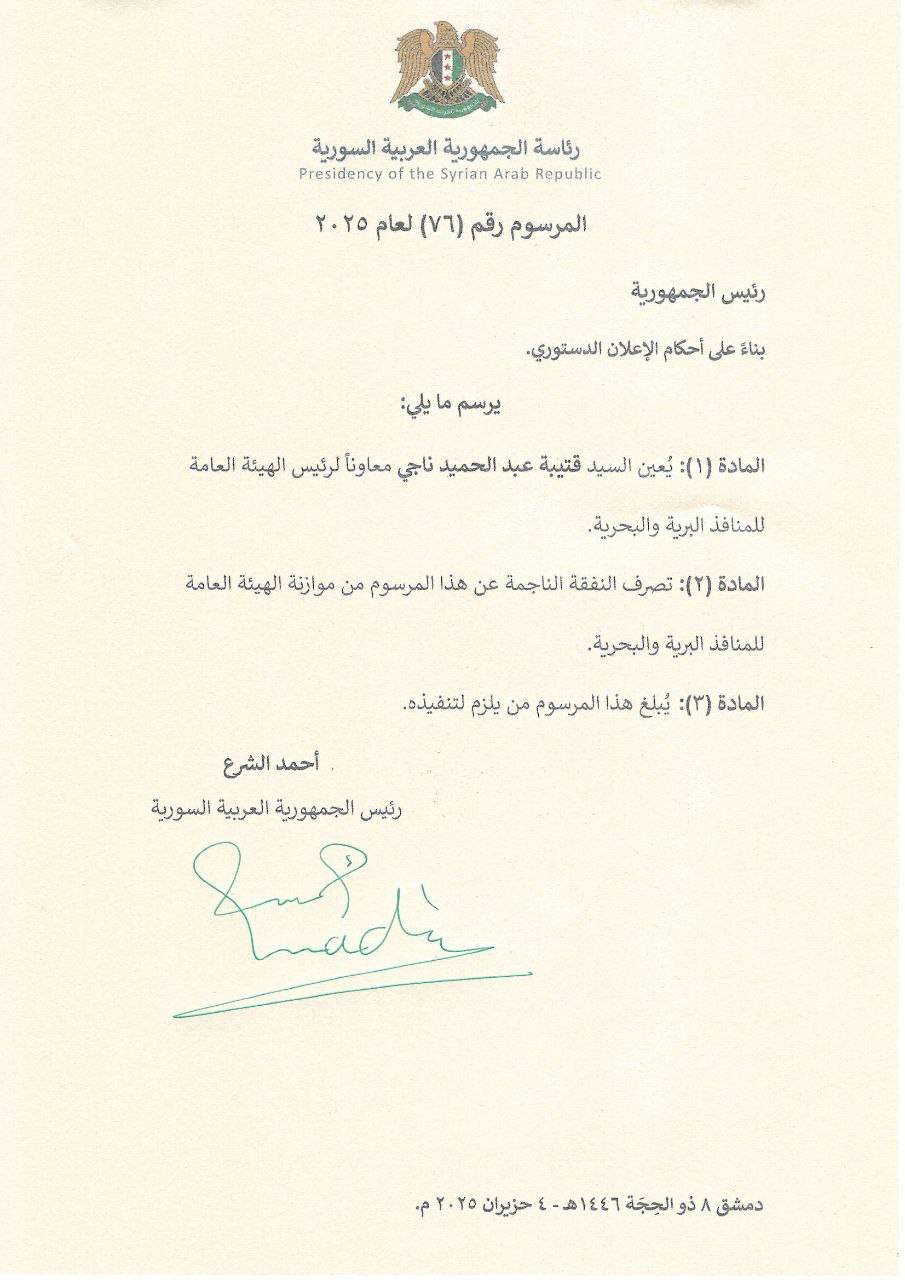 رئاسة الجمهورية العربية السورية
Presidency of the Syrian Arab Republic
المرسوم رقم (٧٦) لعام ٢٠٢٥
رئيس الجمهورية
بناءً على أحكام الإعلان الدستوري.
يرسم ما يلي:
المادة (١): يُعين السيد قتيبة عبد الحميد ناجي معاوناً لرئيس الهيئة العامة
للمنافذ البرية والبحرية.
المادة (٢): تصرف النفقة الناجمة عن هذا المرسوم من موازنة الهيئة العامة
للمنافذ البرية والبحرية.
المادة (٣): يُبلغ هذا المرسوم من يلزم لتنفيذه.
أحمد الشرع
رئيس الجمهورية العربية السورية
دمشق ٨ ذو الحِجَة ١٤٤٦هـ - ٤ حزيران ٢٠٢٥ م.